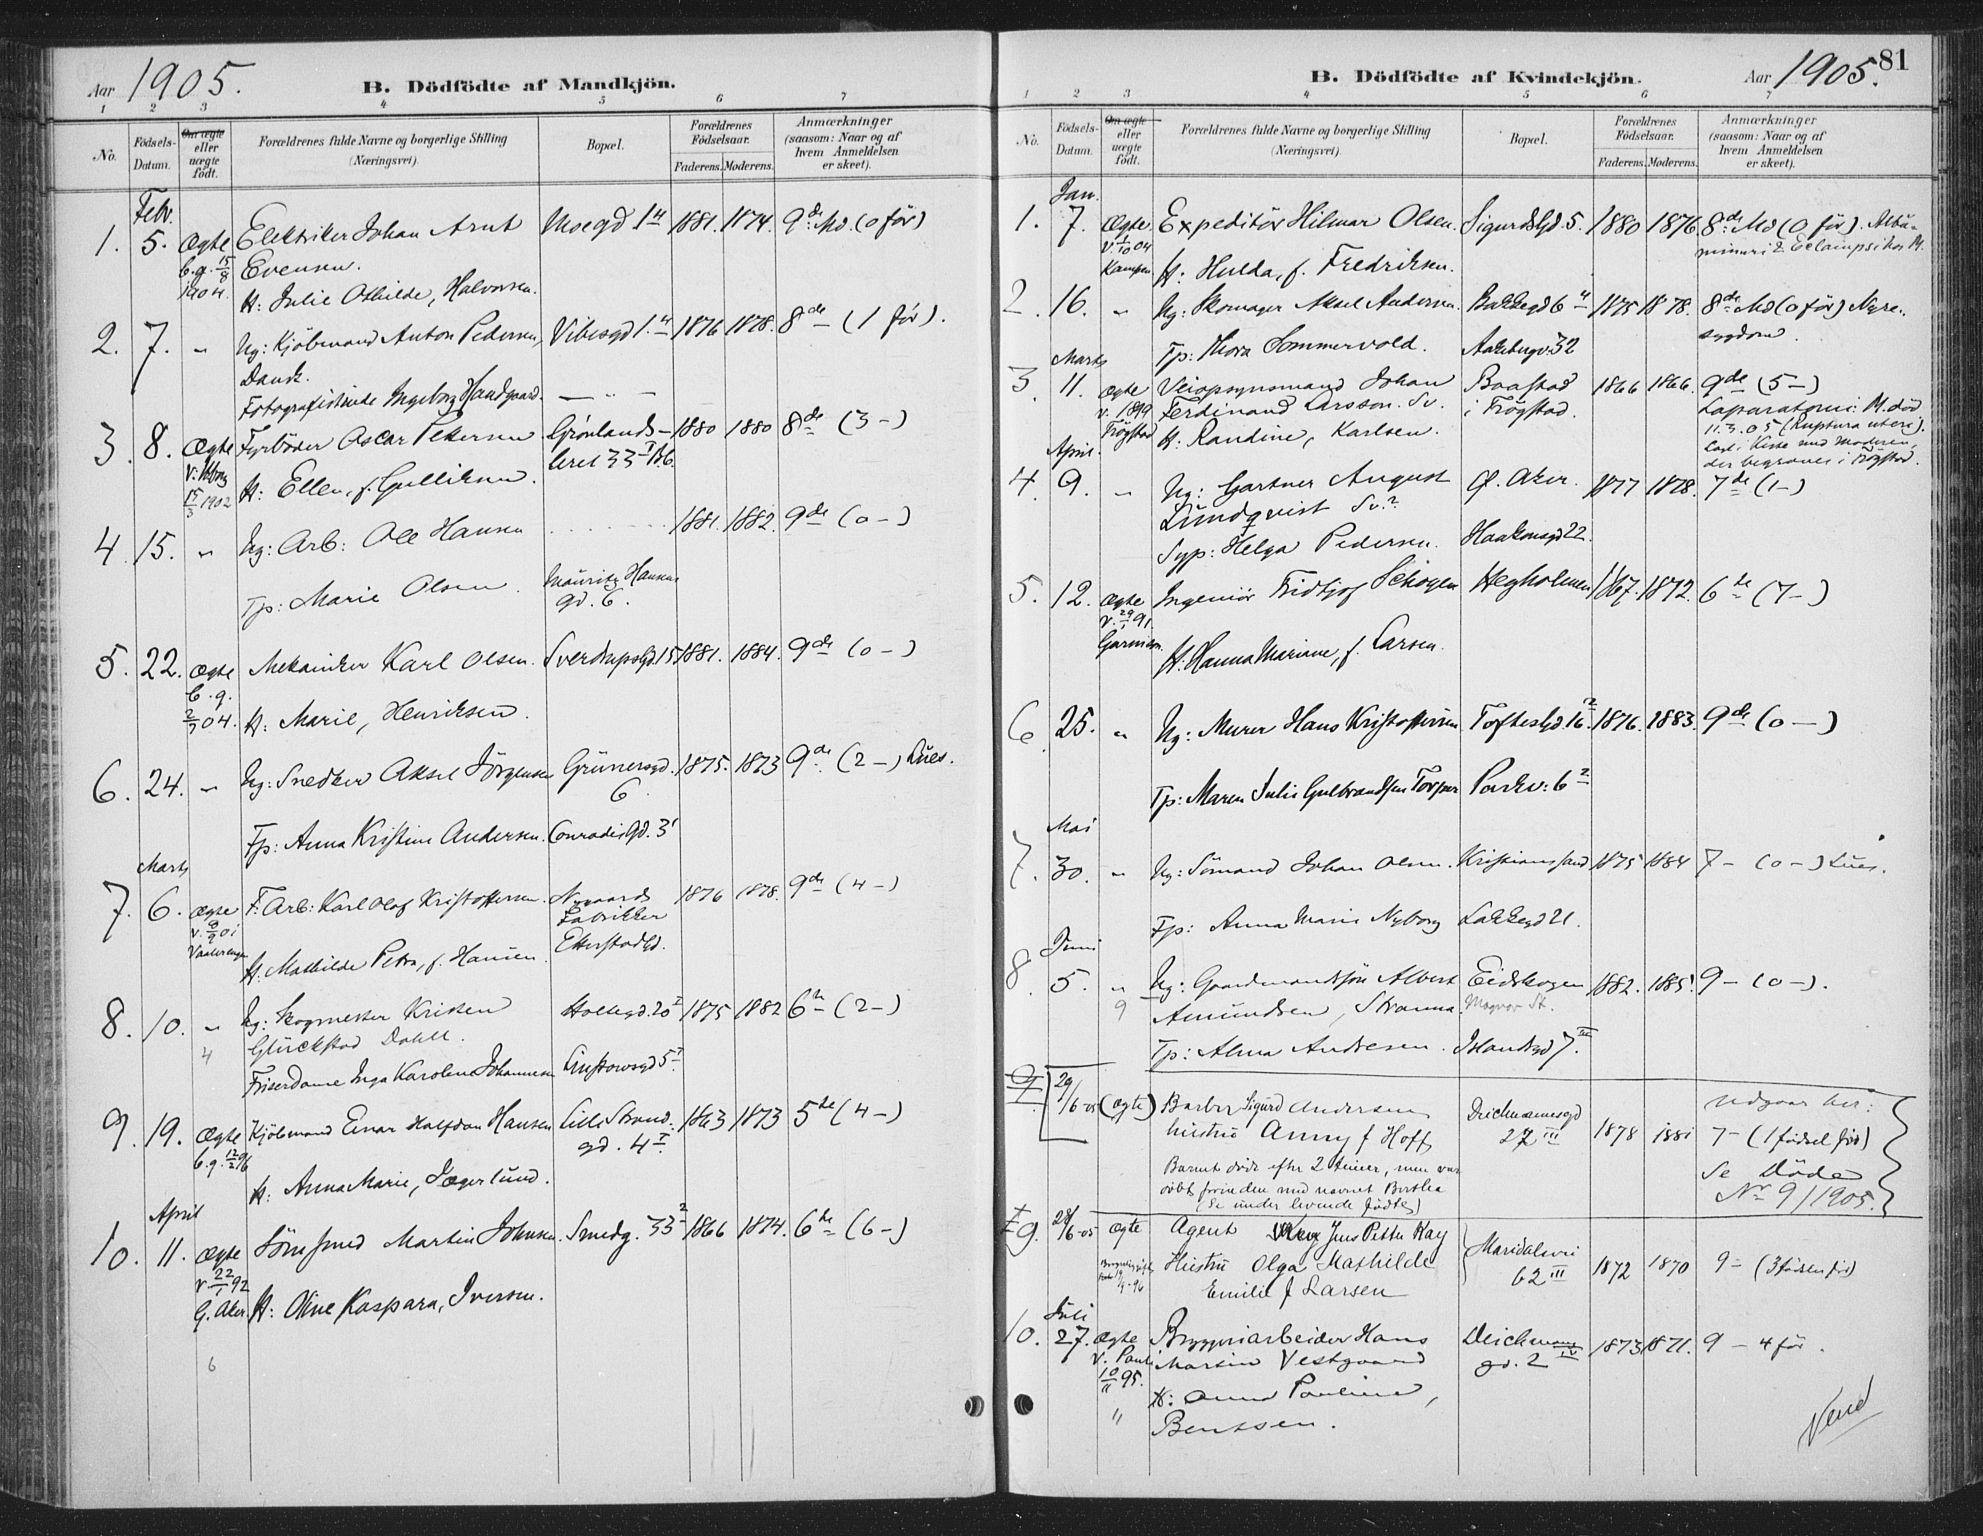 Aar 1905.
B. Dödfödte af Mandkjön.
1 2 3 4 5 6 7
No.
Födsels-Datum.
Om ægte eller uægte födt.
Forældrenes fulde Navne og borgerlige Stilling (Næringsvei).
Bopæl.
Forældrenes Födselsaar.
Faderens. Moderens.
Anmærkninger (saasom: Naar og af hvem Anmeldelsen er skeet).
Febr.
1. 5. Ægte Elektriker Johan Arnt Moegd 1 1881. 1874. 9de Md (0 för)
b.g. 15/8 1904. Evensen.
H: Julie Othilde, Halvorsen.
2. 7. " Ug: Kjöbmand Anton Pedersen, Vibesgd 1. 1876 1878. 8de (1 för).
Dansk.
Fotografistinde Ingeborg Handgaard. — " —
3. 8. Ægte Fyrböder Oscar Pettersen Grönlands- 1880 1880 8de (3 -)
leret 33 I
15/3 1902 H: Ellen, f. Gulliksen.
4. 15. " Ug: Arb: Ole Hansen 1881. 1882. 9de (0 -)
Tp: Marie Olsen. Mauritz Hansens gd. 6.
5. 22. Ægte Mekaniker Karl Olsen. Sverdrupsgd. 15 1881. 1884. 9de (0 -)
b.g. 04. H: Marie, Henriksen.
6. 24. " Ug: Snedker Aksel Jörgensen Grünersgd. 6 1875. 1873 9de (2 -) Lues.
Tp: Anna Kristine Andersen. Conradisgd. 3
Marts
7. 6. Ægte F. Arb: Karl Olaf Kristoffersen. Nygaards Fabrikker Etterstadgd. 1876 1878. 9de (4 -)
H. Mathilde Petra, f. Hansen.
8. 10. " Ug: Skogmester Kristen Holtegd. 20 1875 1882 6te (2 -)
4 Glückstad Dahll.
Friserdame Inga Karoline Johannesen Linstowsgd 5
9. 19. Ægte Kjöbmand Einar Halfdan Hansen Lille Strand- 1863 1873 5te (4 -)
b.g. 12/2 96 gd. 4 I
H. Anna Marie, Jægerlund.
April
10. 11. Ægte Martin Johnsen. Smedg. 33 2 1866 1874. 6te (6 -)
v. 22/1 92
G. Aker H: Oline Kaspara, Iversen.
6
B. Dödfödte af Kvindekjön.
Aar 1905. 81
1 2 3 4 5 6 7
No.
Födsels-Datum.
Om ægte eller uægte födt.
Forældrenes fulde Navne og borgerlige Stilling (Næringsvei).
Bopæl.
Forældrenes Födselsaar.
Faderens. Moderens.
Anmærkninger (saasom: Naar og af hvem Anmeldelsen er skeet).
Jan.
1. 7. Ægte Expeditör Hilmar Olsen. Sigurdsgd. 5. 1880 1876 8de Md (0 för).
v. 1/10 04
Kampen H: Hulda, f. Fredriksen.
2. 16. " Ug: Skomager Aksel Andersen Bakkegd 6 1875 1878. 8de Md (0 för) Nyre-
sygdom.
Tp: Thora Sommervold. Aakebergv. 32
Marts
3. 11. Ægte Veiopsynsmand Johan Baastad 1866 1866. 9de (5 -)
v. 1899 Ferdinand Larsson. Sv. i Trögstad. Laparatomi: M. död
Trögstad H. Randine, Karlsen. 11.3.05 (Ruptura uteri).
Lagt i Kiste med Moderen,
der begraves i Trögstad.
April.
4. 9. " Ug: Gartner August Ö. Aker. 1877 1878. 7de (1 -)
Lundqvist Sv.?
Syp: Helga Pedersen. Haakonsgd 22.
5. 12. Ægte Ingeniör Fridtjof Schøyen Hegholmen 1867. 1872. 6te (7 -)
v. 29/1 91.
H. Hanna Mariane, f. Larsen.
6. 25. " Ug: Murer Hans Kristoffersen Toftesgd. 16. 1876. 1883. 9de (0 -)
Tp: Maren Julie Gulbrandsen Torper Parkv: 6 2
Mai
7. 30. " Ug: Sömand Johan Olsen. Kristianssand 1875 1884 7 - (0 -) Lues.
Tp: Anna Marie Nyborg Lakkegd 21.
Juni
8. 5. " Ug: Gaardmandssön Albert Eidskogen 1882. 1885. 9 - (0 -).
9 Amundsen, Stranna. Magnor St.
Tp: Alma Andresen. Islandsgd 7. III
9. 29/6-05 (Ægte) Barber Sigurd Andersen Deichmannsgd 27 III 1878 1881 Udgaar her:
hustru Anny f Hoff 7 - (1 födsel för)
Barnet döde efter 2 timer, men var Se Döde
döbt forinden med navnet Berthea No 9/1905.
(Se under levende födte)
9. 28/6-05 Ægte Agent Jens Petter Kay Maridalsvei 62 III 1872 1870 9 - (3 födsler för)
Hustru Olga Mathilde
Emilie f Larsen
Juli
10. 27. Ægte Bryggeriarbeider Hans Deichmans gd. 2 IV 1873 1871. 9 - 4 för.
v. Pauli Martin Vestgaard
10/11 95. H: Anna Pauline,
" Bentsen.
Vend